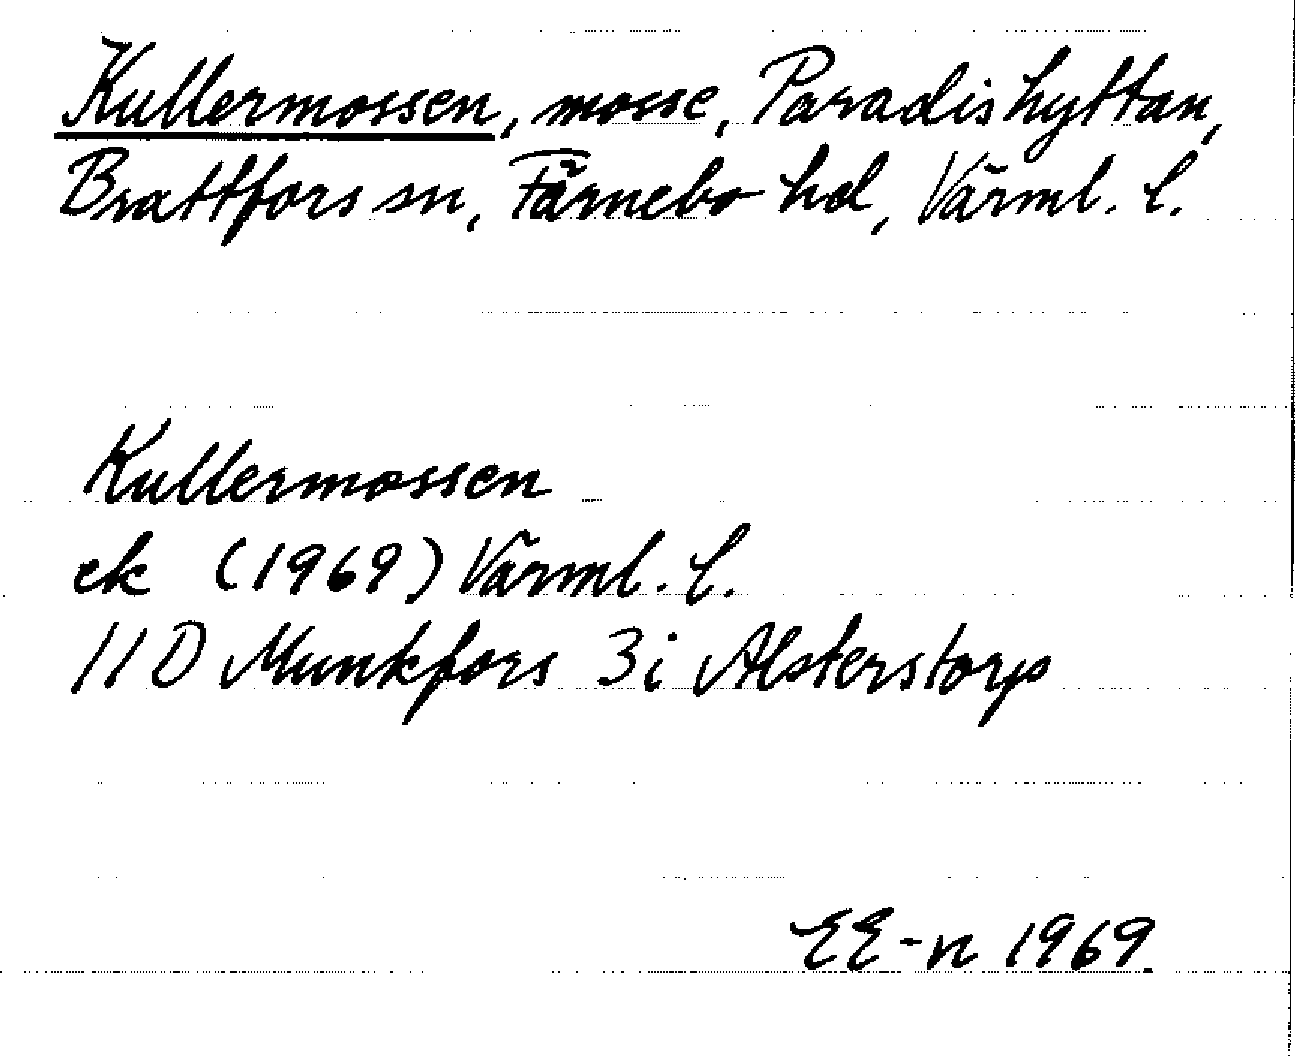 Kullermossen, mosse, Paradishyttan,
Brattfors sn, Färnebo hd, Värml. l.
Kullermossen
ek (1969) Värml. l.
11D Munkfors 3i Alsterstorp
EE-n 1969.